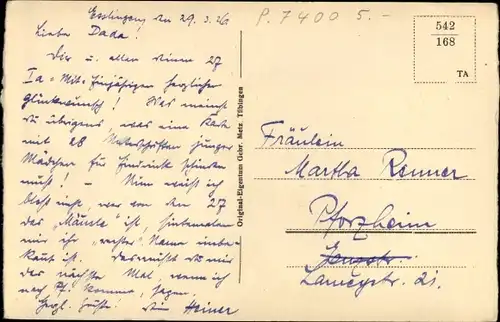 Esslingen, den 29. 3. 26
Liebe Dada!
Dir u. allen deinen 27
Ia-Mit-Einjährigen herzlichen
Glückwunsch! Was meinst
du übrigens, was eine Karte
mit 28 Unterschriften junger
Mädchen für Eindruck schinden
muss! - Nun weiß ich
bloß nicht, wer von den 27
das "Mäusle" ist, sintemalen
mir ihr "rechter" Name unbe-
kannt ist. Das musst du mir
das nächste Mal, wenn ich
nach Pf. komme, sagen.
Herzl. Grüße! Dein Heiner
Original-Eigentum Gebr. Metz, Tübingen
P. 7400 5.-
542
168
TA
Fräulein
Martha Renner
Pforzheim
Lameystr. 21.